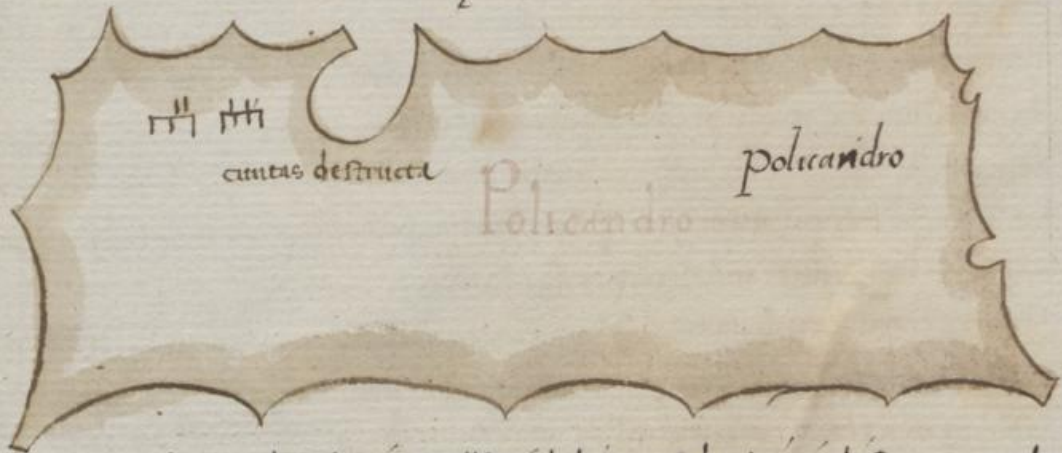 ciuitas destructa
policandro
Policandro